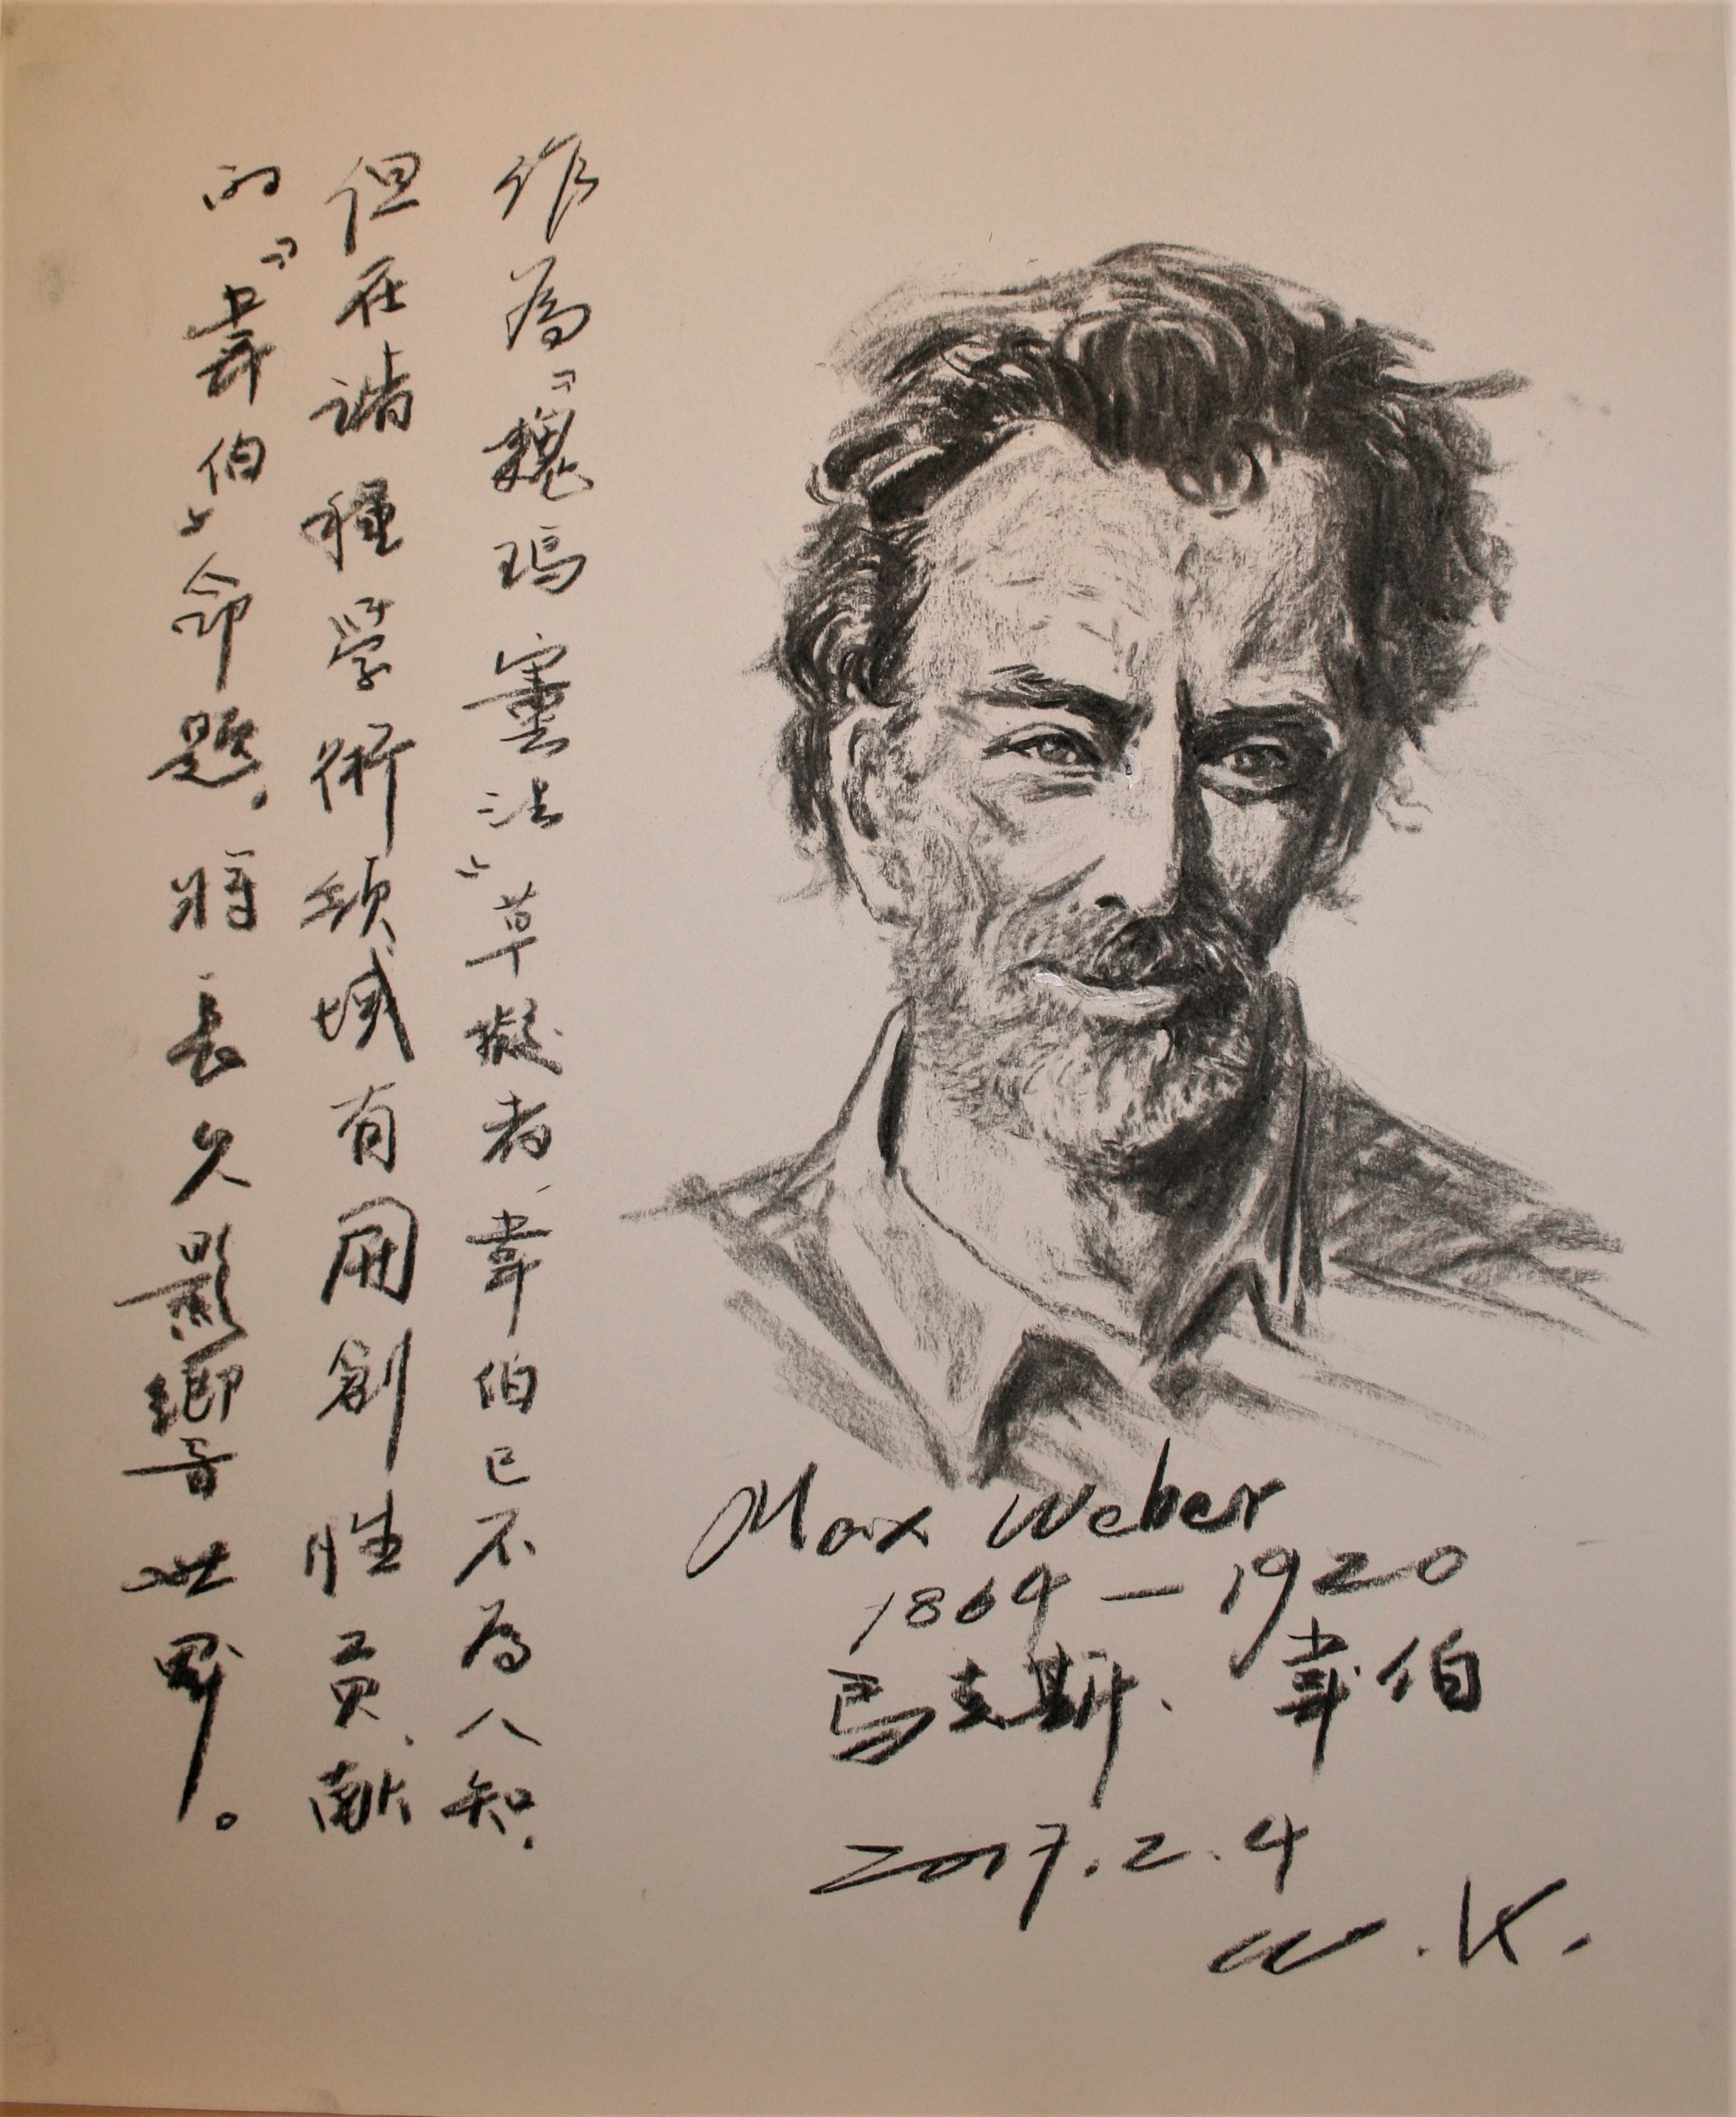 作為『魏瑪憲法』草擬者，韋伯已不為人知，
但在諸種學術領域有開創性貢献
的『韋伯』命題，將長久影響世界。
Max Weber
1864 — 1920
馬克斯、韋伯
2017.2.4
W.K.